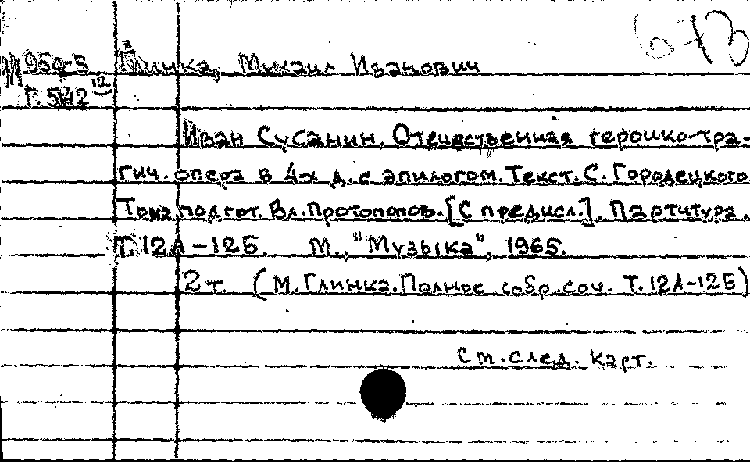 М 954-5 Глинка, Михаил Иванович
Г. 542
Иван Сусанин. Отечественная героико-тра-
гич. опера в 4-х д. с эпилогом. Текст. С. Городецкого
Тома подгот. Вл. Протопопов. [С предисл.]. Партитура.
Т. 12А-12Б. М., "Музыка", 1965.
2 т. (М. Глинка. Полное собр. соч. Т. 12А-12Б)
См. след. карт.